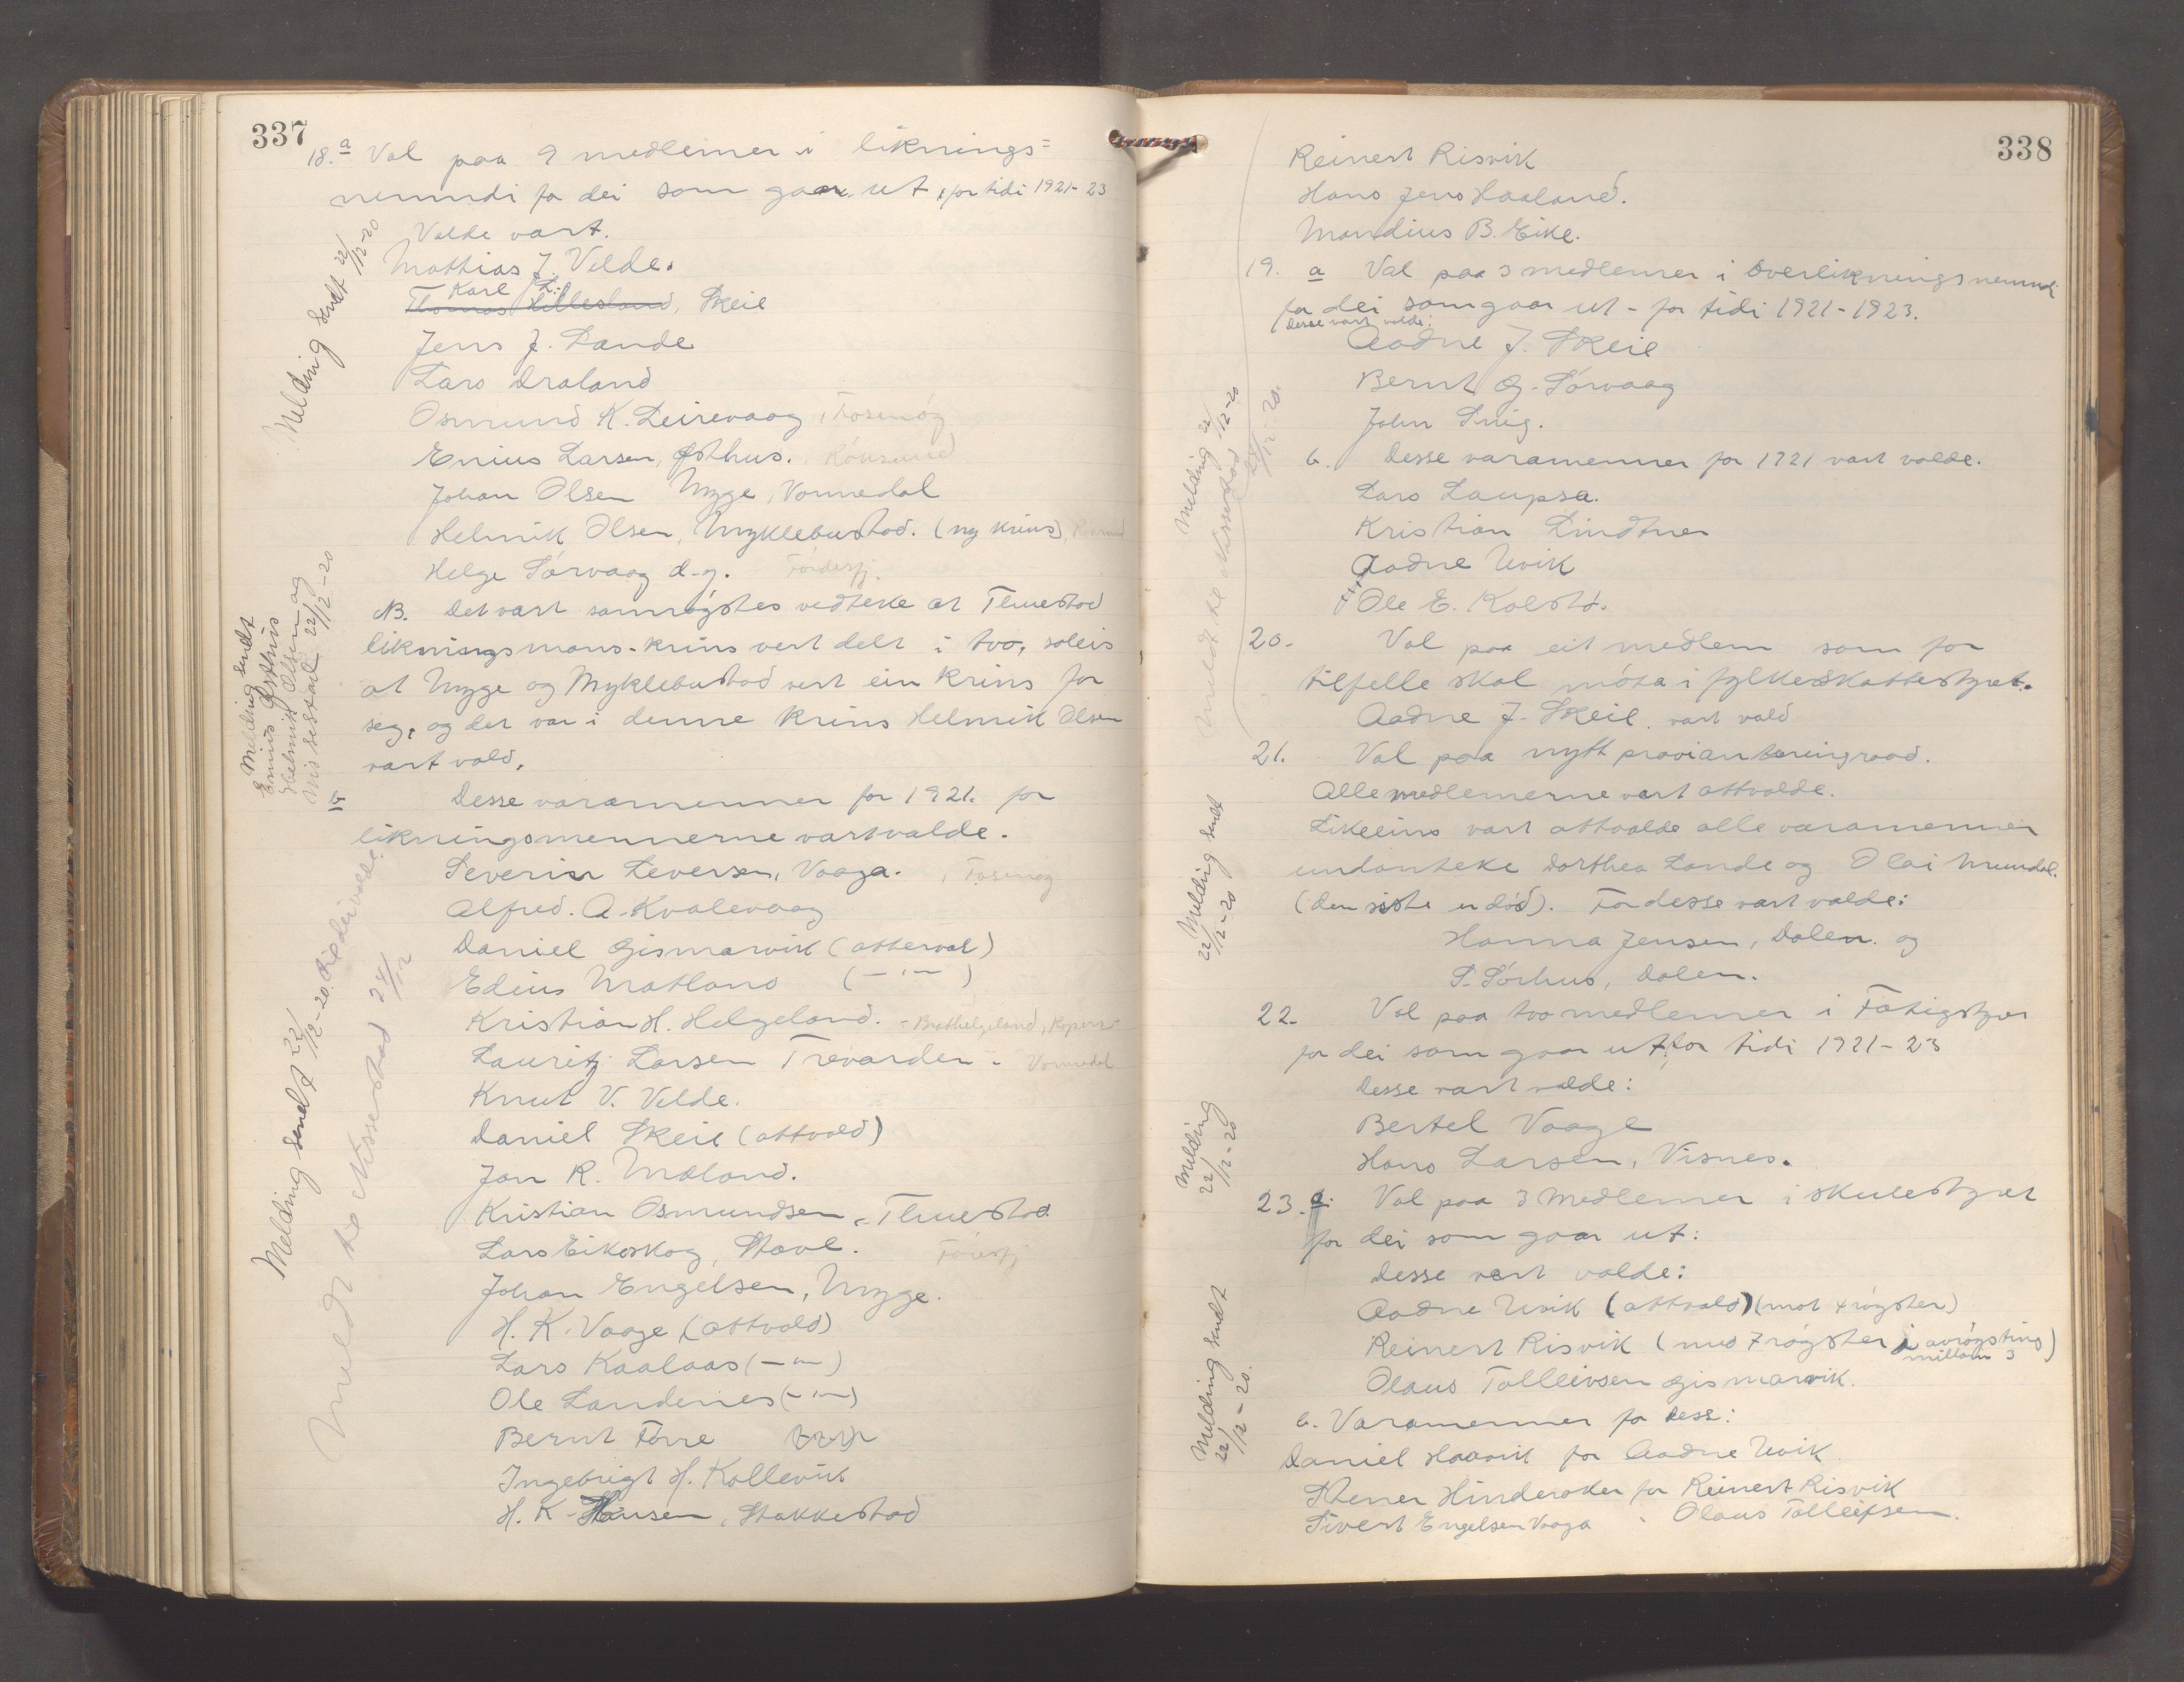 337
18. a Val paa 9 medlemer i liknings=
nemndi for dei som gaar ut, for tidi 1921-23
Valde vart.
Mathias J. Velde.
Karl L.
Thomas Lillesland, Skeie
Jens J. Lande
Lars Draland
Osmund K. Leirevaag, Fosenøy
Enius Larsen, Østhus. Røksund
Johan Olsen Myge, Vormedal
Helmik Olsen, Myklebustad. (ny krins),
Helge Sørvaag d.y. Førdesfj.
NB. Det vart samrøystes vedteke at Tluestad
likningsmans-krins vert delt i tvo, soleis
at Myge og Myklebustad vert ein krins for
seg, og det var i denne krins Helmik Olsen
vart vald.
b Desse varamenner for 1921. for
likningsmennerne vart valde.
Severin Seversen, Vaaga. , Fosenøy
Alfred. A. Kvalevaag
Daniel Gismarvik (atterval)
Edius Matland ( — " — )
Kristian H. Helgeland. - Brathelgeland,
Lauritz Larsen Trevarden - Vormedal
Knut V. Velde.
Daniel Skeie (attvald)
Jan R. Mæland.
Kristian Osmundsen, Tluestad
Lars Eikeskog, Stavl. Føresfj
Johan Engelsen, Myge.
H. K. Vaage, (attvald)
Lars Kaalaas (— " —)
Ole Landenes (— " —)
Bernt Førre
Ingebrigt H. Kallevik
H. K. Hansen, Stakkestad
Melding sendt 22/12-20
Melding sendt
Enius Østhus
Helmik Olsen og
22/12-20
Melding sendt 22/12-20. til dei valde.
Meldt til Nissestad 24/12
338
Reinert Risvik
Hans Jens Haaland.
Mandius B. Eike.
19. a Val paa 3 medlemer i overlikningsnemnd
for dei som gaar ut - for tidi 1921-1923.
Desse vart valde:
Aadne J. Skeie
Bernt G. Sørvaag
John Snig.
b. Desse varamenner for 1921 vart valde.
Lars Laupsa.
Kristian Lindtner
Aadne Uvik
Ole E. Kolstø.
20. Val paa eit medlem som for
tilfelle skal møta i fylkesskattestyret.
Aadne J. Skeie vart vald
21. Val paa nytt provianteringsraad.
Alle medlemerne vart attvalde.
Likeeins vart attvalde alle varamenner
undanteke Dorthea Lande og Olai Mundal.
(den siste er død). For desse vart valde:
Hanna Jensen, Dalen. og
S. Sørhus, Dalen.
22. Val paa tvo medlemer i Fatigstyret
for dei som gaar ut, for tidi 1921-23
Desse vart valde:
Bertel Vaage
Hans Larsen, Visnes.
23. a. Val paa 3 Medlemer i skulestyret
for dei som gaar ut:
Desse vart valde:
Aadne Uvik (attvald) (mot 4 røyster)
Reinert Risvik (med 7 røyster i avrøysting
millom 3)
Olaus Tolleivsen Gismarvik.
b. Varamenner for dess:
Daniel Haavik for Aadne Uvik
Stener Hinderaker for Reinert Risvik
Sivert Engelsen Vaaga " Olaus Tolleifsen.
Melding 22/12-20
Meldt til Nissestad 24/12-20.
Melding sendt
22/12-20
Melding
22/12-20
Melding sendt
22/12-20.